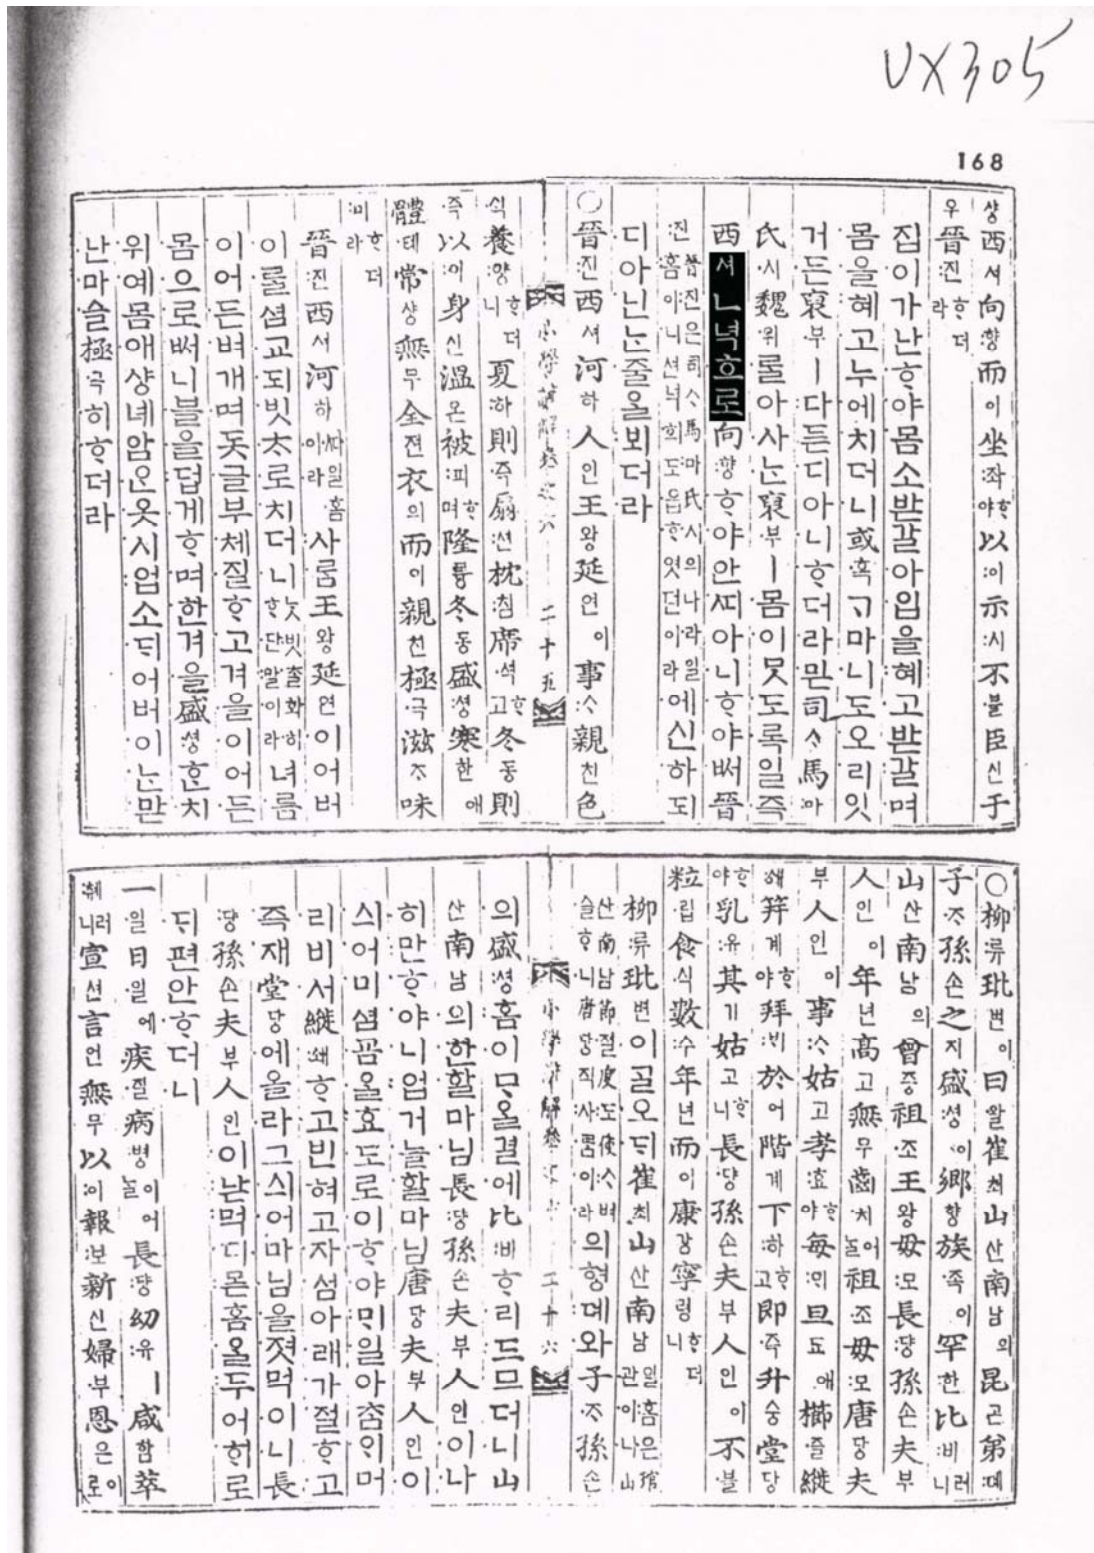 UX305
168
샹西셔向향而이坐좌ᄒᆞ야以이示시不블臣신于
우晉진ᄒᆞ더라
집이가난ᄒᆞ야몸소받갈아입을혜고받갈며
몸을혜고누에치더니或혹ᄀᆞ마니도오리잇
거든裒부ㅣ다든디아니ᄒᆞ더라믿司ᄉᆞ馬마
氏시魏위ᄅᆞᆯ아사ᄂᆞᆫ裒부ㅣ몸이ᄆᆞᆺ도록일즉
西셔ㄴ녁흐로向향ᄒᆞ야안ᄯᅵ아니ᄒᆞ야ᄡᅥ晉
진晉진은司ᄉᆞ馬마氏시의나라일홈이니션녁희도읍ᄒᆞ엿던이라에신하되
디아닌ᄂᆞᆫ줄을뵈더라
○晉진西셔河하人인王왕延연이事ᄉᆞ親친色
小學諺解卷之六 二十五
식養양ᄒᆞ더니夏하則즉扇션枕침席셕ᄒᆞ고冬동則
즉以이身신溫온被피ᄒᆞ며隆륭冬동盛셩寒한애
體톄常샹無무全젼衣의而이親친極극滋ᄌᆞ味
미ᄒᆞ더라
晉진西셔河하ᄯᅡ일홈이라사ᄅᆞᆷ王왕延연이어버
이ᄅᆞᆯ셤교되빗太로치더니ᄂᆞᆺ빗츨화히ᄒᆞ단말이라녀름
이어든벼개며돗글부체질ᄒᆞ고겨을이어든
몸으로ᄡᅥ니블을덥게ᄒᆞ며한겨을盛셩ᄒᆞᆫ치
위예몸애샹녜암ᄋᆞᆫ옷시업소ᄃᆡ어버이ᄂᆞᆫ맏
난마슬極극히ᄒᆞ더라
○柳류玭변이曰왈崔최山산南남의昆곤弟뎨
子ᄌᆞ孫손之지盛셩이鄕향族족이罕한比비러니
山산南남의曾증祖조王왕母모長댱孫손夫부
人인이年년高고無무齒치어늘祖조母모唐당夫
부人인이事ᄉᆞ姑고孝효ᄒᆞ야每ᄆᆡ旦됴애櫛즐縰
쇄笄계ᄒᆞ야拜ᄇᆡ於어階계下하ᄒᆞ고即즉升승堂당
ᄒᆞ야乳유其기姑고ᄒᆞ니長댱孫손夫부人인이不블
粒립食식數수年년而이康강寧령ᄒᆞ더니
柳류玭변이ᄀᆞᆯ오ᄃᆡ崔최山산南남일홈은琯관이나山
산南남節졀度도使ᄉᆞ벼슬ᄒᆞ니唐당직사ᄅᆞᆷ이라의형뎨와子ᄌᆞ孫손
小學諺解卷之六 二十六
의盛셩홈이ᄆᆞᄋᆞᆯ결에比비ᄒᆞ리드므더니山
산南남의한할마님長댱孫손夫부人인이나
히만ᄒᆞ야니업거늘할마님唐당夫부人인이
싀어미셤굠올효도로이ᄒᆞ야ᄆᆡ일아ᄎᆞᆷᄋᆡ머
리비서縰쇄ᄒᆞ고빈혀고자섬아래가절ᄒᆞ고
즉재堂당에올라그싀어마님을졋먹이니長
댱孫손夫부人인이낟먹디몯홈을두어ᄒᆡ로
ᄃᆡ편안ᄒᆞ더니
一일日일에疾질病병이어늘長댱幼유ㅣ咸함萃
췌러니宣션言언無무以이報보新신婦부恩은이로